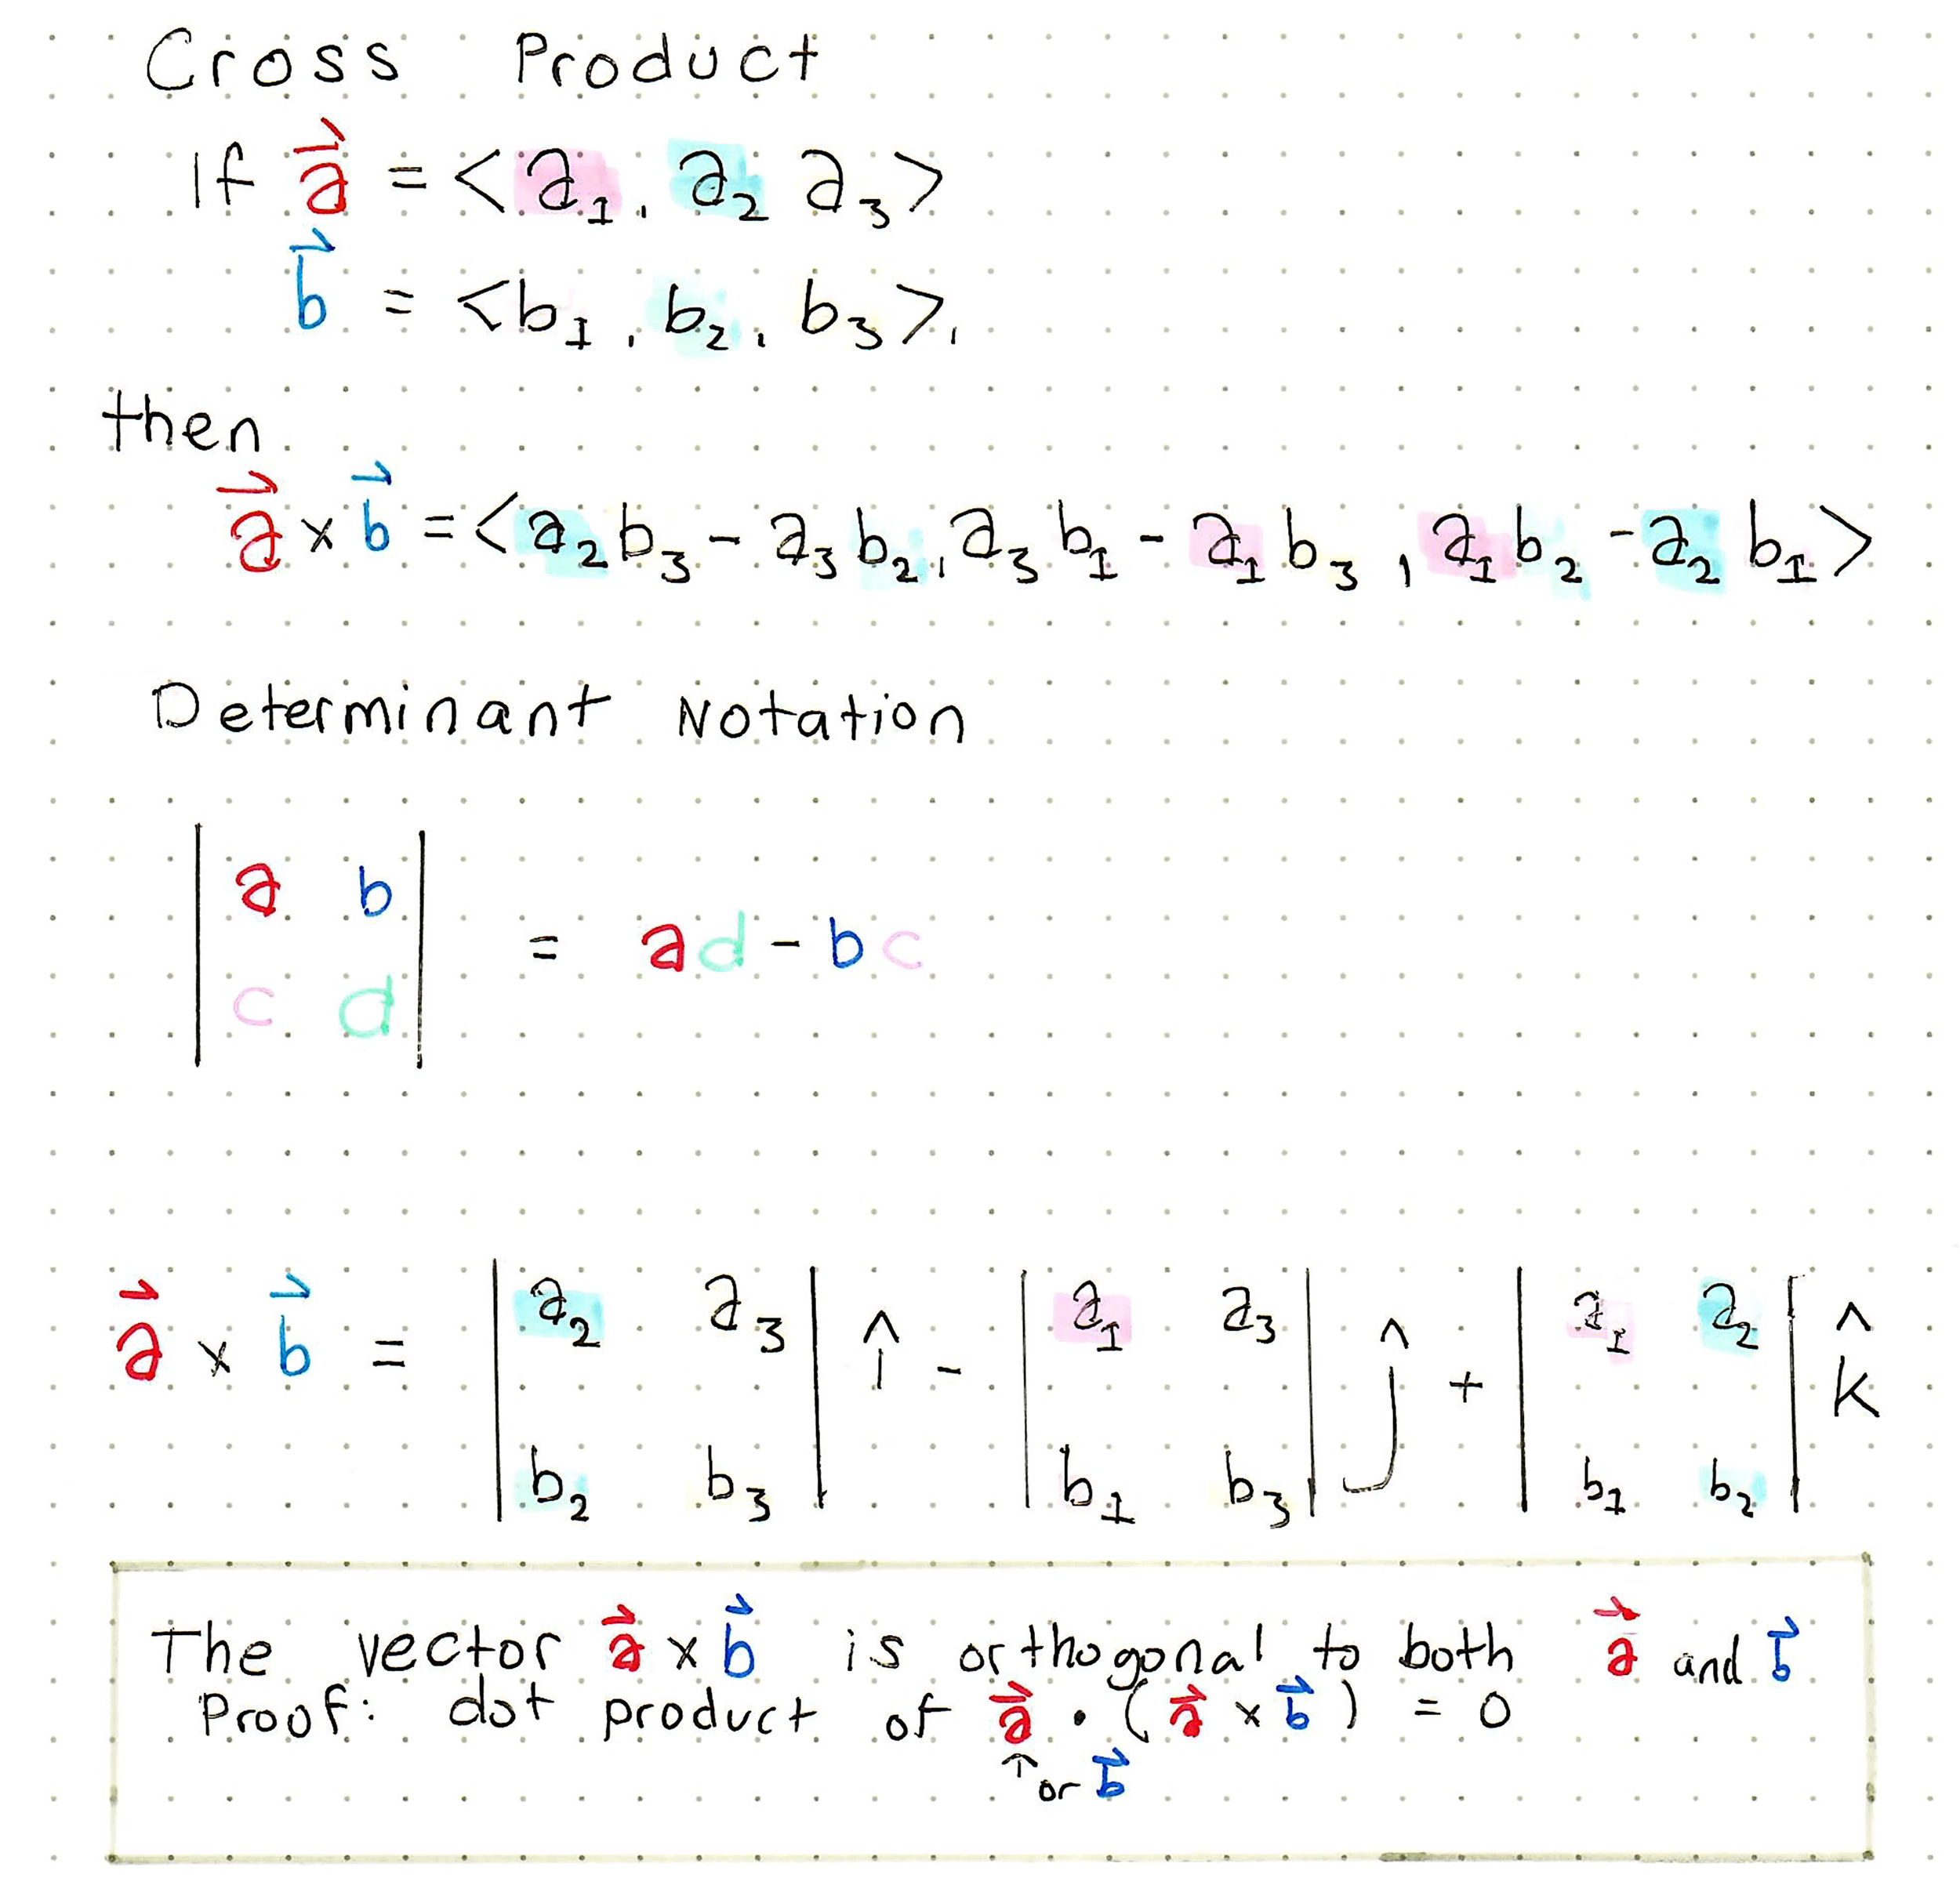 Cross Product
If a⃗ = <a₁, a₂ a₃>
b⃗ = <b₁, b₂, b₃>,
then
a⃗ × b⃗ = <a₂b₃ - a₃b₂, a₃b₁ - a₁b₃, a₁b₂ - a₂b₁>
Determinant Notation
| a b |
| c d | = ad - bc
a⃗ × b⃗ = | a₂ a₃ | î - | a₁ a₃ | ĵ + | a₁ a₂ | k̂
| b₂ b₃ | | b₁ b₃ | | b₁ b₂ |
The vector a⃗ × b⃗ is orthogonal to both a⃗ and b⃗
Proof: dot product of a⃗ · (a⃗ × b⃗) = 0
↑ or b⃗